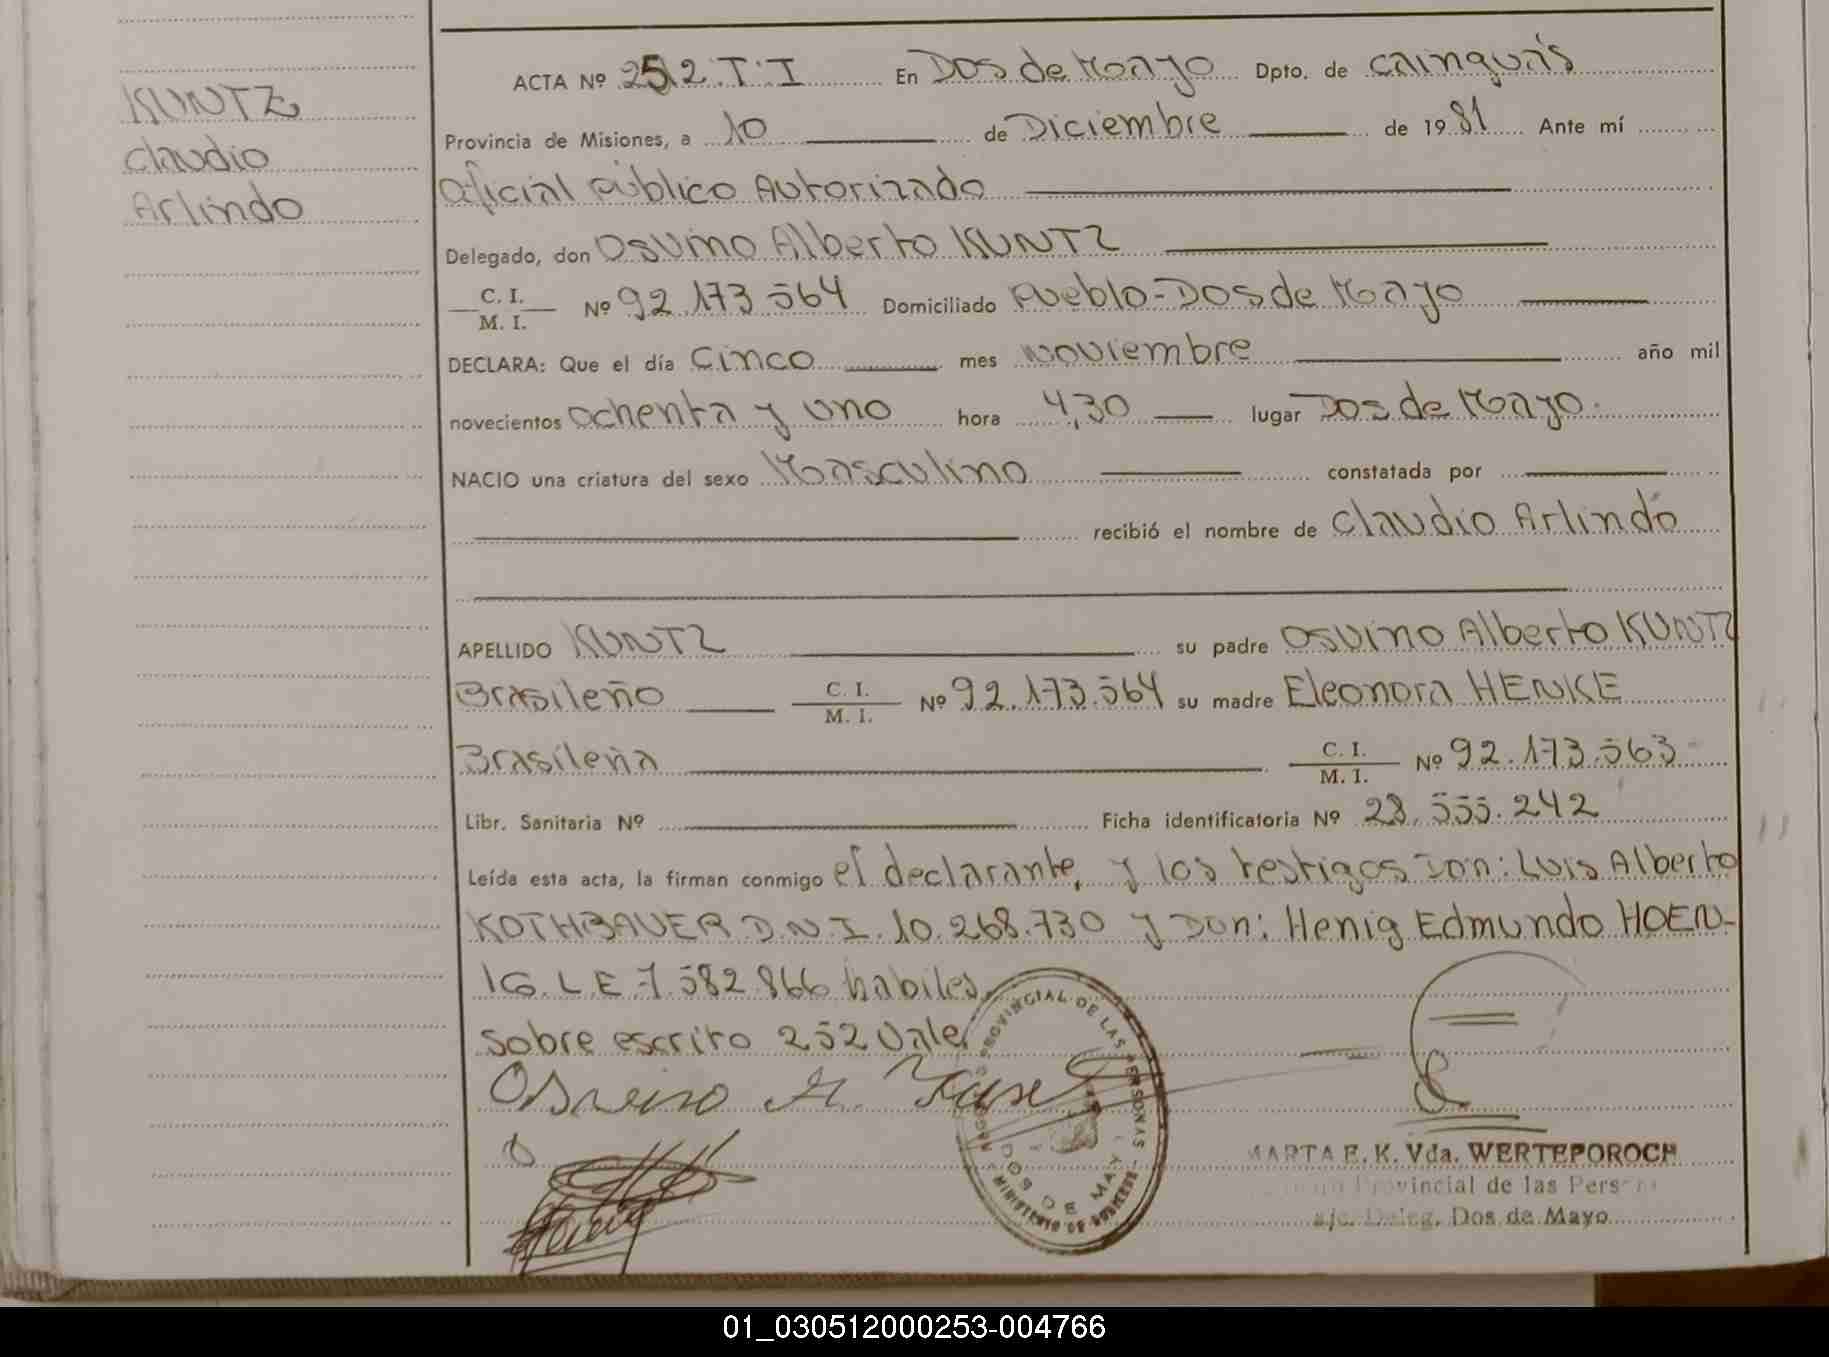 KUNTZ
Claudio
Arlindo
ACTA Nº 252 T. I En Dos de Mayo Dpto. de Cainguás
Provincia de Misiones, a 10 de Diciembre de 1981 Ante mí
Oficial Público Autorizado
Delegado, don Osvino Alberto KUNTZ
C. I. / M. I. Nº 92.173.564 Domiciliado Pueblo-Dos de Mayo
DECLARA: Que el día Cinco mes noviembre año mil
novecientos ochenta y uno hora 4,30 lugar Dos de Mayo.
NACIO una criatura del sexo Masculino constatada por
recibió el nombre de Claudio Arlindo
APELLIDO KUNTZ su padre Osvino Alberto KUNTZ
Brasileño C. I. / M. I. Nº 92.173.564 su madre Eleonora HENKE
Brasileña C. I. / M. I. Nº 92.173.563
Libr. Sanitaria Nº Ficha identificatoria Nº 28.555.242
Leída esta acta, la firman conmigo el declarante, y los testigos Don: Luis Alberto
KOTHBAUER D.N.I. 10.268.730 y Don: Henig Edmundo HOEN-
IG. L.E 7.582.866 habiles.
Sobre escrito 252 Vale.
PROVINCIAL DE LAS PERSONAS
DOS DE MAYO
MINISTERIO DE GOBIERNO
MARTA E. K. Vda. WERTEPOROCH
Provincial de las Person
Deleg. Dos de Mayo
01_030512000253-004766